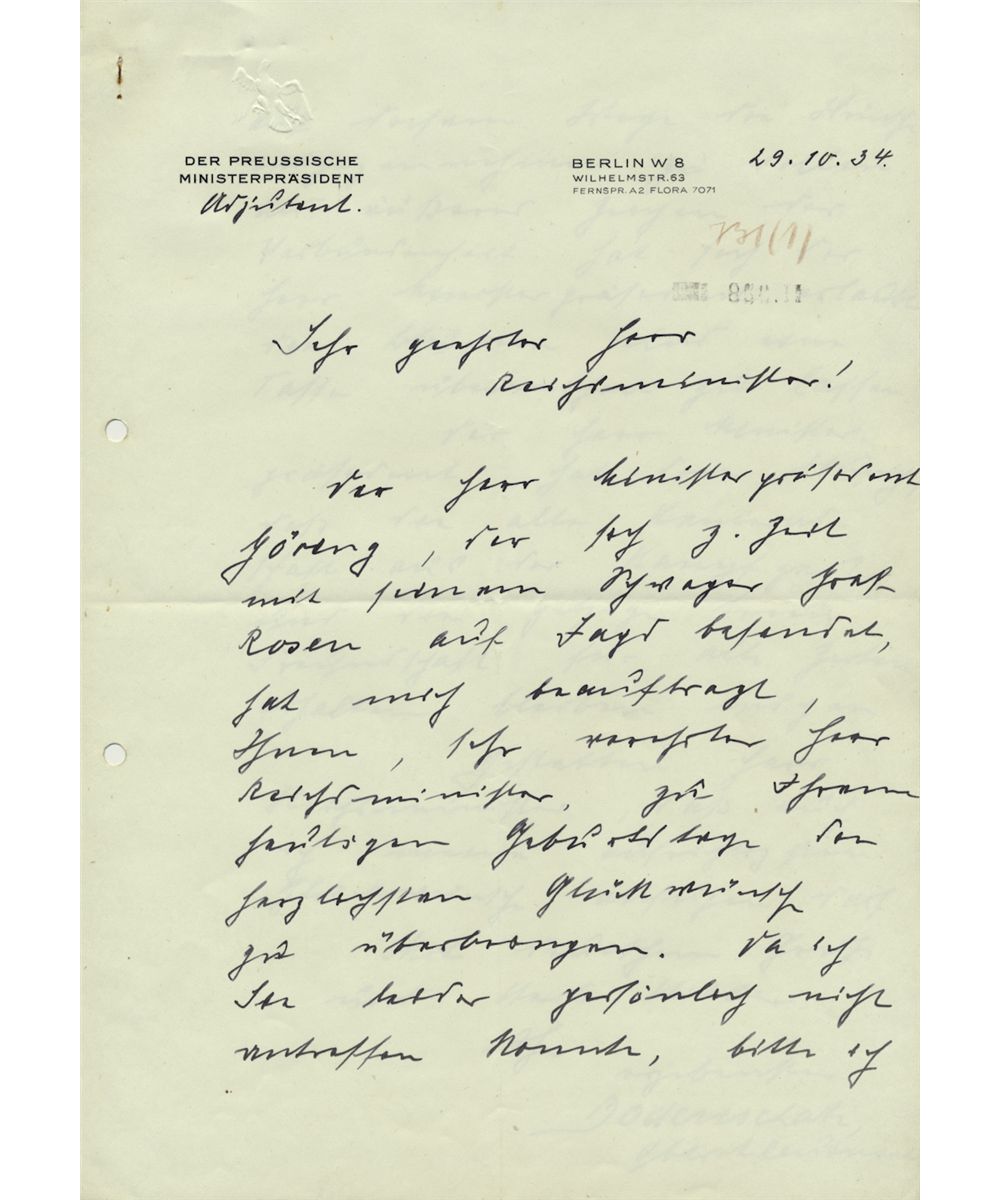 DER PREUSSISCHE
MINISTERPRÄSIDENT
Adjutant.
BERLIN W 8
WILHELMSTR. 63
FERNSPR. A2 FLORA 7071
29.10.34.
Sehr geehrter Herr
Reichsminister!
Der Herr Ministerpräsident
Göring, der sich z. Zeit
mit seinem Schwager Graf
Rosen auf Jagd befindet,
hat mich beauftragt,
Ihnen, sehr verehrter Herr
Reichsminister, zu Ihrem
heutigen Geburtstage die
herzlichsten Glückwünsche
zu überbringen. Da ich
Sie leider persönlich nicht
antreffen konnte, bitte ich